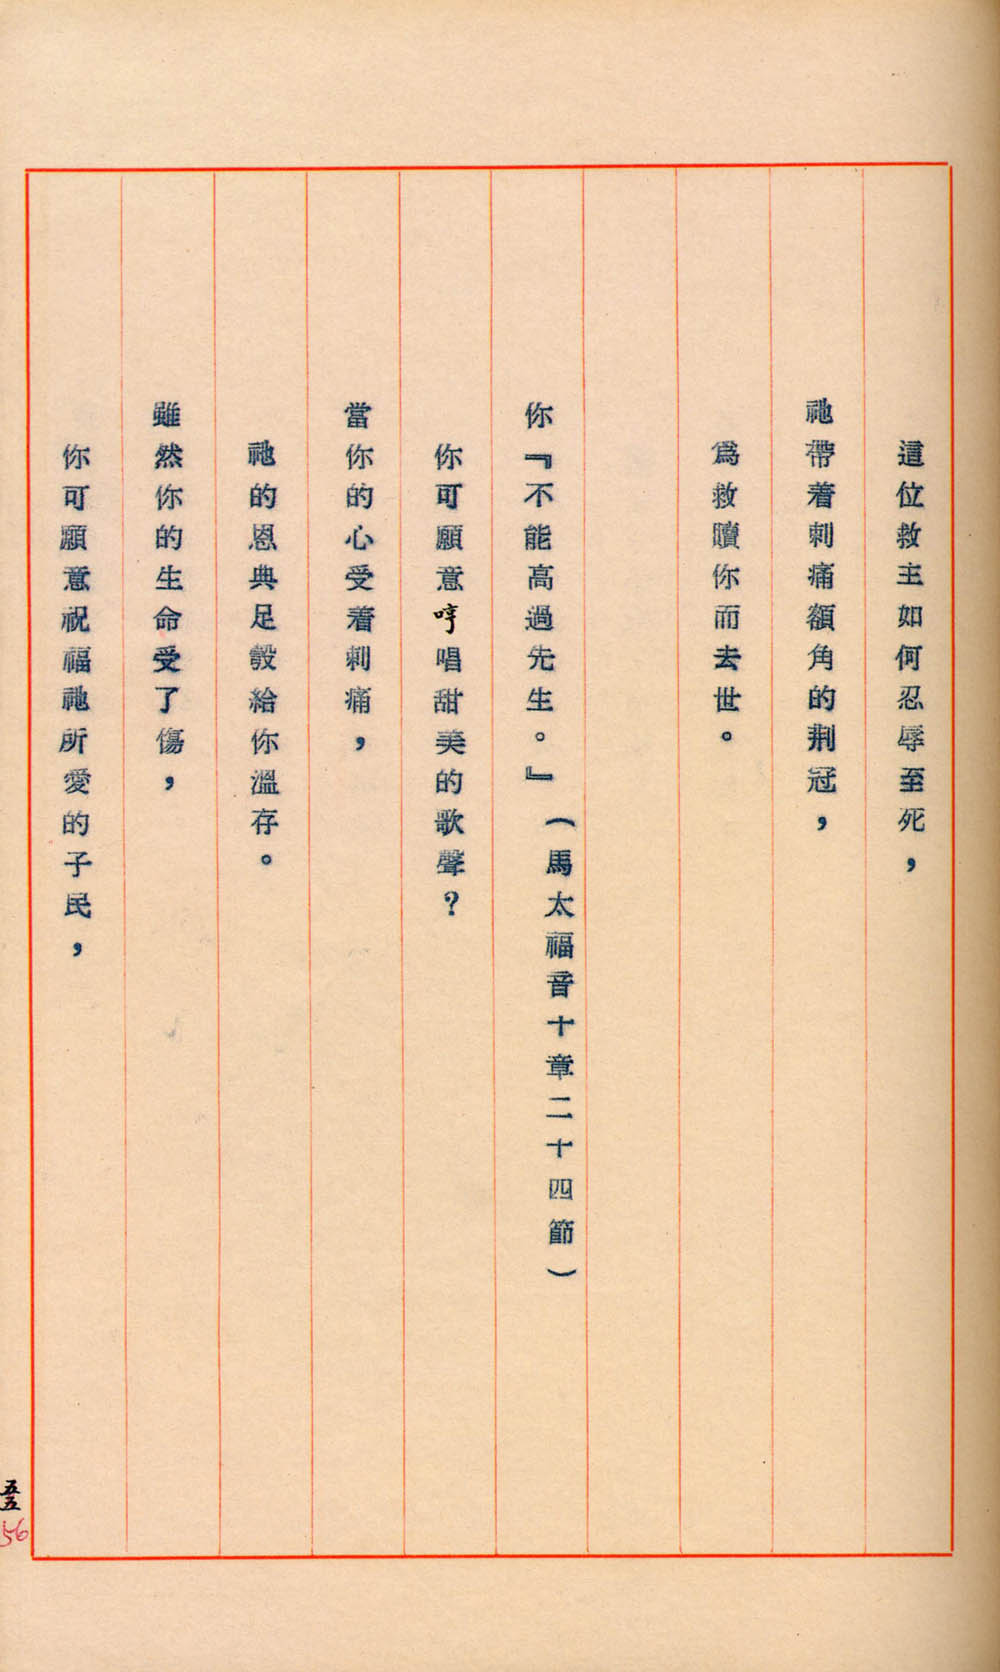 這位救主如何忍辱至死，
祂帶着刺痛額角的荆冠，
爲救贖你而去世。
你『不能高過先生。』（馬太福音十章二十四節）
你可願意哼唱甜美的歌聲？
當你的心受着刺痛，
祂的恩典足彀給你溫存。
雖然你的生命受了傷，
你可願意祝福祂所愛的子民，
五五
56